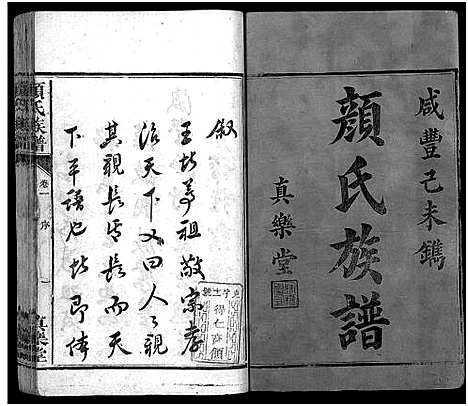 咸豐己未鐫
顏氏族譜
真樂堂
敘
王者尊祖敬宗孝
治天下又曰人人親
其親長其長而天
下平語也者即體
顏氏族譜
卷一
序
真樂堂